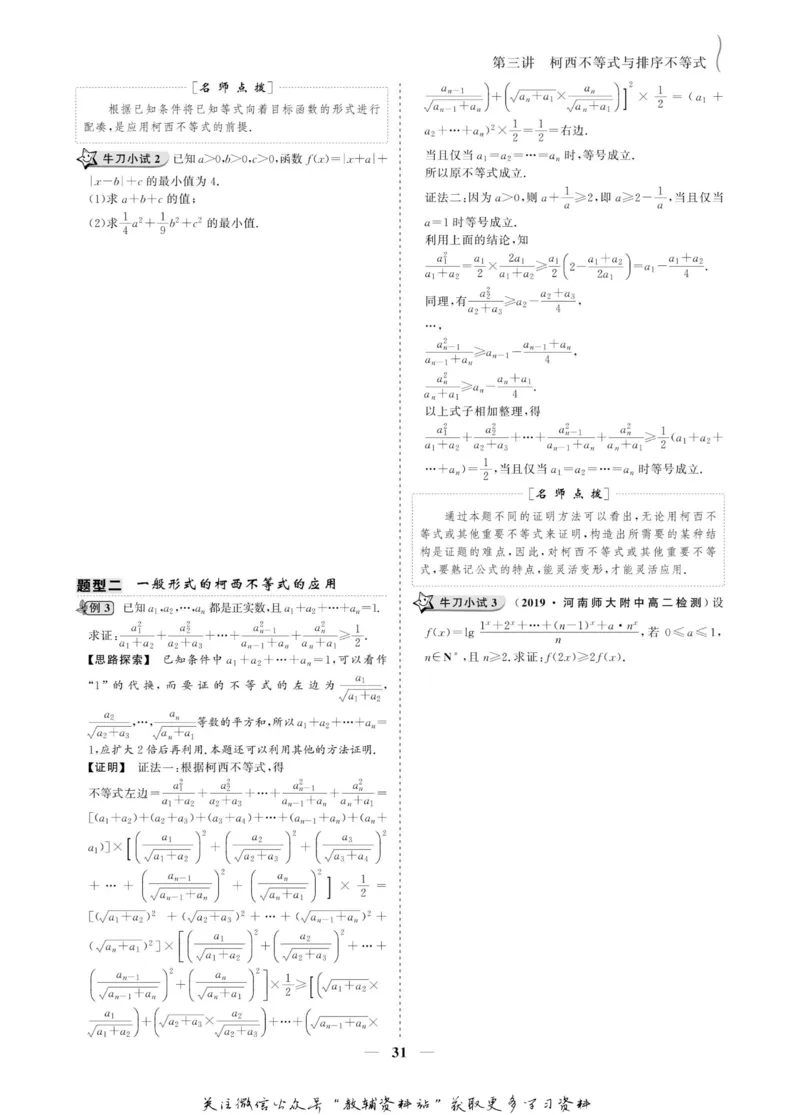 第三讲 柯西不等式与排序不等式
[名师点拨]
根据已知条件将已知等式向着目标函数的形式进行
配凑,是应用柯西不等式的前提.
牛刀小试2 已知a>0,b>0,c>0,函数 f(x)=|x+a|+
|x-b|+c 的最小值为 4.
(1)求 a+b+c 的值;
(2)求 1/4 a²+1/9 b²+c² 的最小值.
题型二 一般形式的柯西不等式的应用
例3 已知a₁,a₂,…,aₙ 都是正实数,且a₁+a₂+…+aₙ=1.
求证: a₁²/(a₁+a₂)+a₂²/(a₂+a₃)+…+aₙ₋₁²/(aₙ₋₁+aₙ)+aₙ²/(aₙ+a₁)≥1/2.
【思路探索】 已知条件中 a₁+a₂+…+aₙ=1,可以看作
“1”的代换,而要证的不等式的左边为 a₁/√(a₁+a₂),
a₂/√(a₂+a₃),…,aₙ/√(aₙ+a₁) 等数的平方和,所以a₁+a₂+…+aₙ=
1,应扩大2倍后再利用.本题还可以利用其他的方法证明.
【证明】 证法一:根据柯西不等式,得
不等式左边= a₁²/(a₁+a₂)+a₂²/(a₂+a₃)+…+aₙ₋₁²/(aₙ₋₁+aₙ)+aₙ²/(aₙ+a₁)=
[(a₁+a₂)+(a₂+a₃)+(a₃+a₄)+…+(aₙ₋₁+aₙ)+(aₙ+
a₁)]×[(a₁/√(a₁+a₂))²+(a₂/√(a₂+a₃))²+(a₃/√(a₃+a₄))²
+…+(aₙ₋₁/√(aₙ₋₁+aₙ))²+(aₙ/√(aₙ+a₁))²]×1/2=
[(√(a₁+a₂))²+(√(a₂+a₃))²+…+(√(aₙ₋₁+aₙ))²+
(√(aₙ+a₁))²]×[(a₁/√(a₁+a₂))²+(a₂/√(a₂+a₃))²+…+
(aₙ₋₁/√(aₙ₋₁+aₙ))²+(aₙ/√(aₙ+a₁))²]×1/2≥[(√(a₁+a₂)×
a₁/√(a₁+a₂))+(√(a₂+a₃)×a₂/√(a₂+a₃))+…+(√(aₙ₋₁+aₙ)×
aₙ₋₁/√(aₙ₋₁+aₙ))+(√(aₙ+a₁)×aₙ/√(aₙ+a₁))]²×1/2=(a₁+
a₂+…+aₙ)²×1/2=1/2=右边.
当且仅当a₁=a₂=…=aₙ 时,等号成立.
所以原不等式成立.
证法二:因为 a>0,则 a+1/a≥2,即 a≥2-1/a,当且仅当
a=1时等号成立.
利用上面的结论,知
a₁²/(a₁+a₂)=a₁/2×2a₁/(a₁+a₂)≥a₁/2(2-(a₁+a₂)/2a₁)=a₁-(a₁+a₂)/4.
同理,有 a₂²/(a₂+a₃)≥a₂-(a₂+a₃)/4,
…,
aₙ₋₁²/(aₙ₋₁+aₙ)≥aₙ₋₁-(aₙ₋₁+aₙ)/4,
aₙ²/(aₙ+a₁)≥aₙ-(aₙ+a₁)/4.
以上式子相加整理,得
a₁²/(a₁+a₂)+a₂²/(a₂+a₃)+…+aₙ₋₁²/(aₙ₋₁+aₙ)+aₙ²/(aₙ+a₁)≥1/2(a₁+a₂+
…+aₙ)=1/2,当且仅当a₁=a₂=…=aₙ 时等号成立.
[名师点拨]
通过本题不同的证明方法可以看出,无论用柯西不
等式或其他重要不等式来证明,构造出所需要的某种结
构是证题的难点,因此,对柯西不等式或其他重要不等
式,要熟记公式的特点,能灵活变形,才能灵活应用.
牛刀小试3 (2019·河南师大附中高二检测)设
f(x)=lg (1ˣ+2ˣ+…+(n-1)ˣ+a·nˣ)/n,若 0≤a≤1,
n∈N*,且 n≥2.求证:f(2x)≥2f(x).
— 31 —
关注微信公众号“教辅资料站”获取更多学习资料